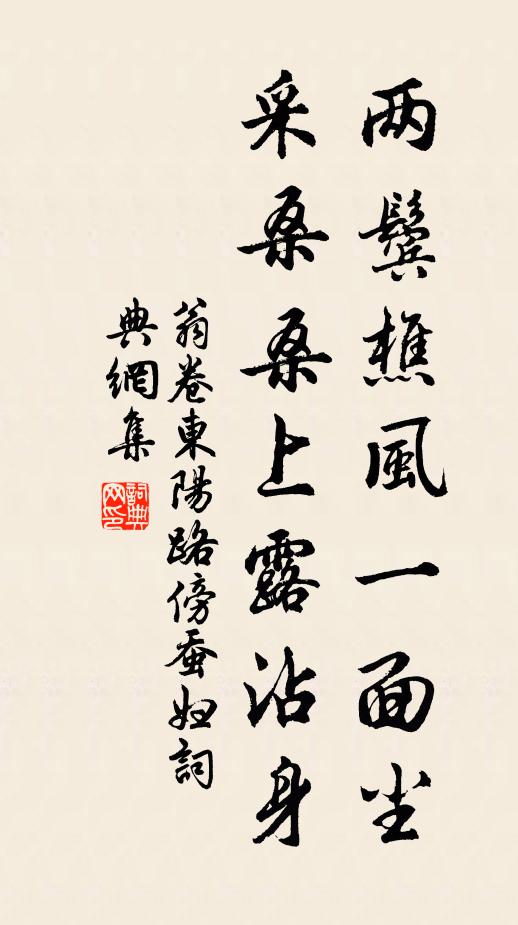 两鬓樵風一面尘
采桑桑上露沾身
翁卷東陽路傍蚕妇詞
典網集
詞典
网印